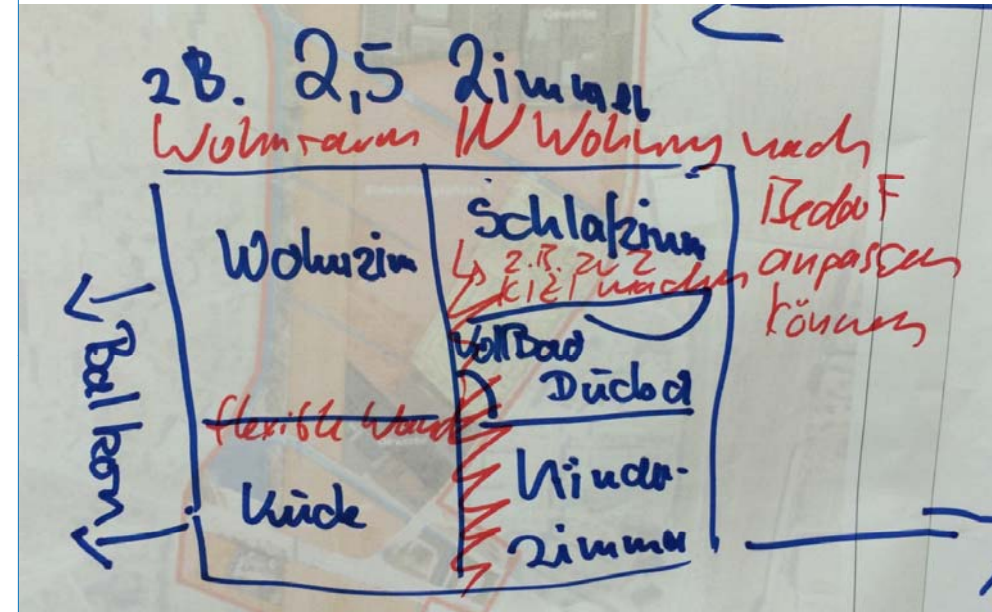 z.B. 2,5 Zimmer
Wohnraum IN Wohnung nach
Bedarf
anpassen
können
Wohnzim
Schlafzimm
↳ z.B. zu 2
KiZi machen
VollBad
Duschbad
flexible Wand
Küche
Kinder-
zimmer
Balkon